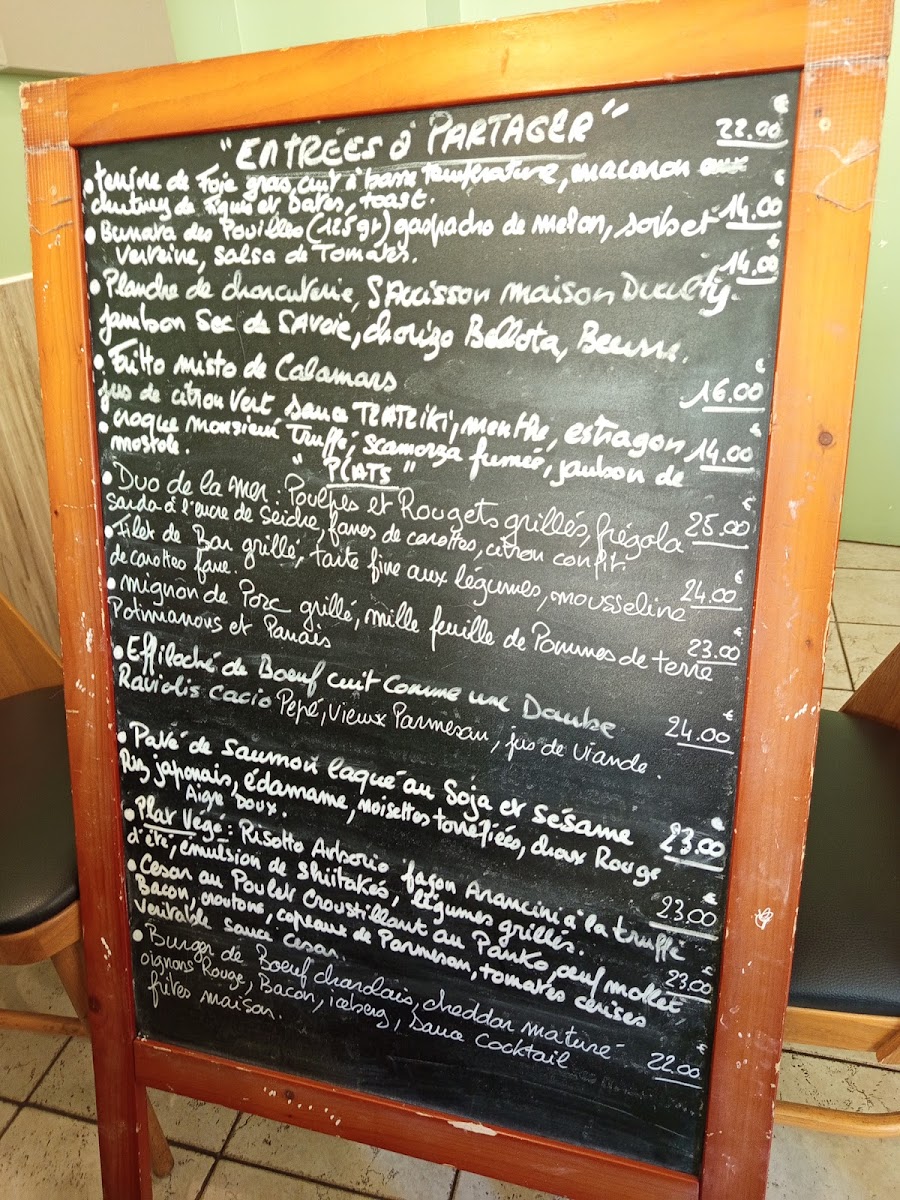 "ENTRÉES à PARTAGER"
• terrine de Foie gras, cuit à basse Température, macaron aux 22.00 €
chutney de Figues et Dates, toast.
• Burrata des Pouilles (125 gr) gaspacho de melon, sorbet 14.00 €
verveine, salsa de Tomates.
• Planche de charcuterie, SAucisson maison 14.00 €
jambon Sec de SAvoie, chorizo Bellota, Beurre.
• Fritto misto de Calamars 16.00 €
jus de citron Vert, sauce TZATZIKI, menthe, estragon
• croque monsieur Truffé, scamorza fumée, jambon de 14.00 €
mostole.
"PLATS"
• Duo de la mer: Poulpes et Rougets grillés, frégola 25.00 €
sarda à l'encre de Seiche, fanes de carottes, citron confit.
• Filet de Bar grillé, tarte fine aux légumes, mousseline 24.00 €
de carottes fane.
• mignon de Porc grillé, mille feuille de Pommes de terre 23.00 €
Potimarrons et Panais
• Effiloché de Boeuf cuit Comme une Daube 24.00 €
Raviolis Cacio Pepe, vieux Parmesan, jus de viande.
• Pavé de saumon laqué au Soja et sésame 23.00 €
Riz japonais, édamame, noisettes torréfiées, choux Rouge
Aigre Doux.
• Plat Végé: Risotto Arborio façon Arancini à la truffe 23.00 €
d'été, émulsion de shiitakés, légumes grillés.
• Cesar au Poulet Croustillant au Panko, oeuf mollet, 23.00 €
Bacon, croutons, copeaux de Parmesan, tomates cerises
véritable sauce Cesar.
• Burger de Boeuf charolais, cheddar maturé 22.00 €
oignons Rouge, Bacon, iceberg, sauce cocktail
frites maison.